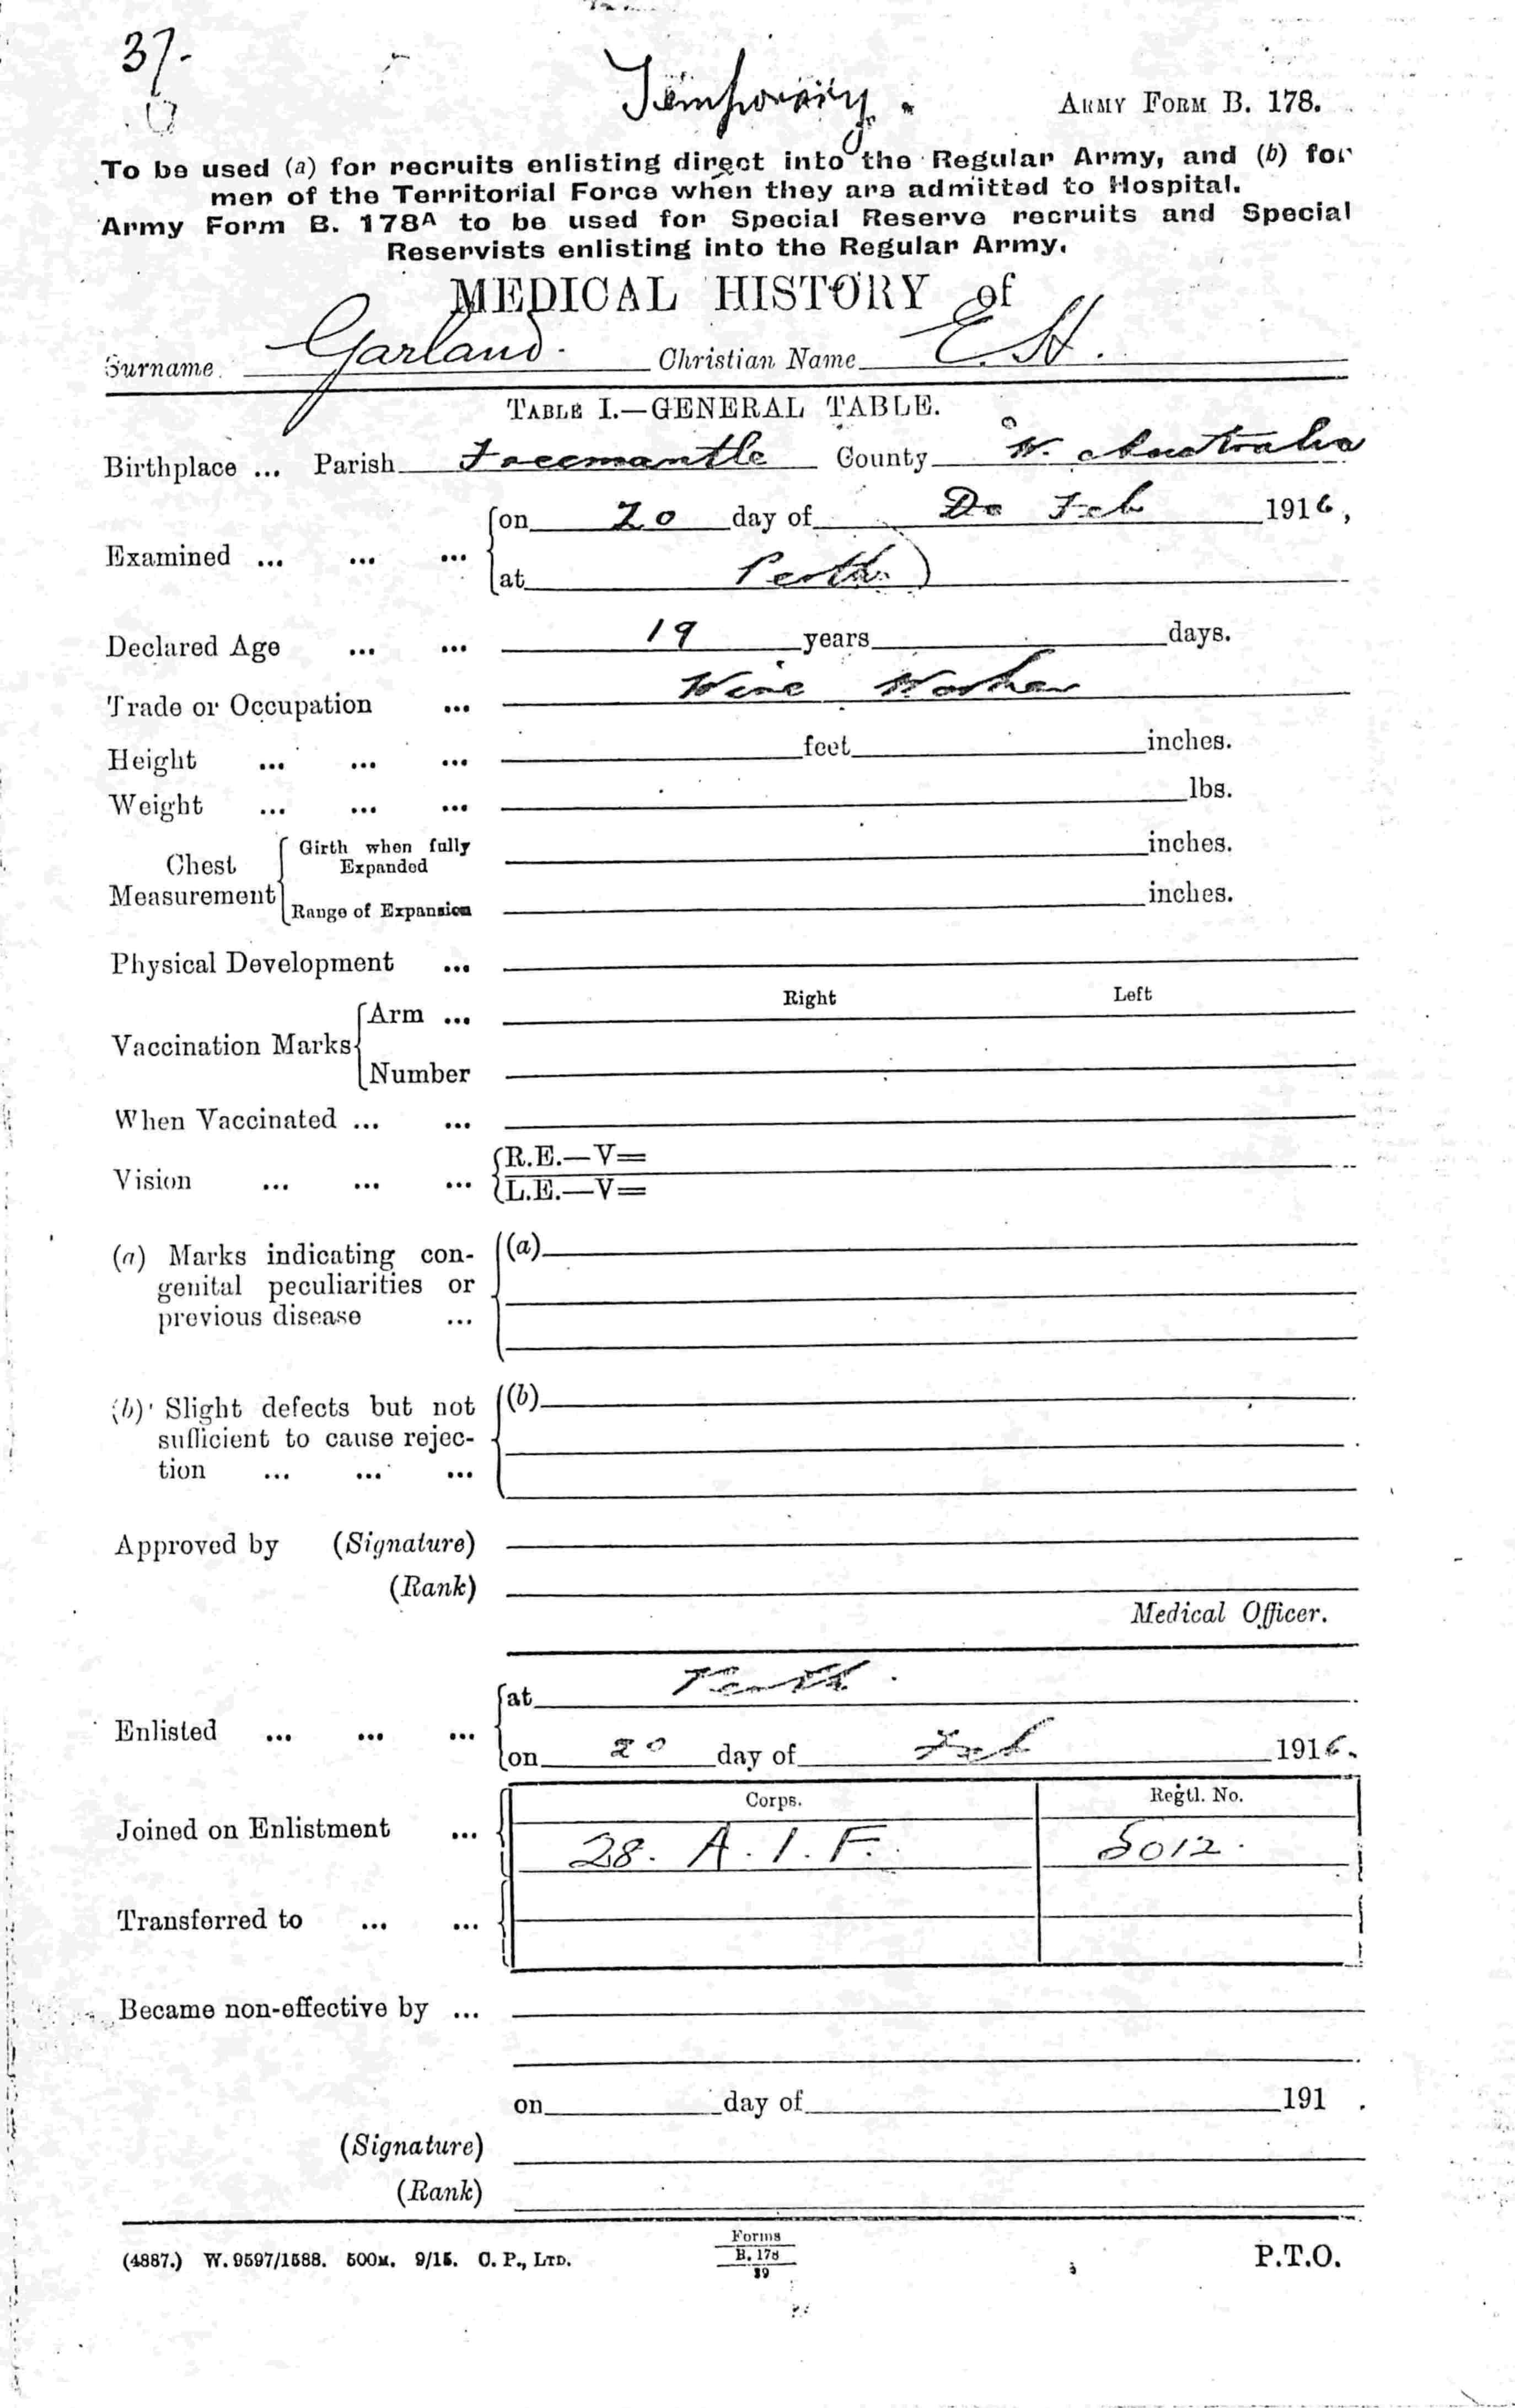 37.
Temporary.
ARMY FORM B. 178.
To be used (a) for recruits enlisting direct into the Regular Army, and (b) for
men of the Territorial Force when they are admitted to Hospital.
Army Form B. 178A to be used for Special Reserve recruits and Special
Reservists enlisting into the Regular Army.
MEDICAL HISTORY of
Surname Garland. Christian Name E. H.
TABLE I.—GENERAL TABLE.
Birthplace ... Parish Freemantle County W. Australia
Examined ... ... ... on 20 day of Do Feb 1916,
at Perth
Declared Age ... ... 19 years days.
Trade or Occupation ... Wire Worker
Height ... ... ... feet inches.
Weight ... ... ... lbs.
Chest Measurement Girth when fully Expanded inches.
Range of Expansion inches.
Physical Development ...
Right Left
Vaccination Marks Arm ...
Number
When Vaccinated ... ...
Vision ... ... ... R.E.—V=
L.E.—V=
(a) Marks indicating con- (a)
genital peculiarities or
previous disease ...
(b) Slight defects but not (b)
sufficient to cause rejec-
tion ... ... ...
Approved by (Signature)
(Rank)
Medical Officer.
Enlisted ... ... ... at Perth.
on 20 day of Feb 1916.
Corps. Regtl. No.
Joined on Enlistment ... 28. A. I. F. 5012.
Transferred to ... ...
Became non-effective by ...
on day of 191 .
(Signature)
(Rank)
(4887.) W. 9597/1588. 500M. 9/15. O. P., LTD. Forms
B. 178
39
P.T.O.